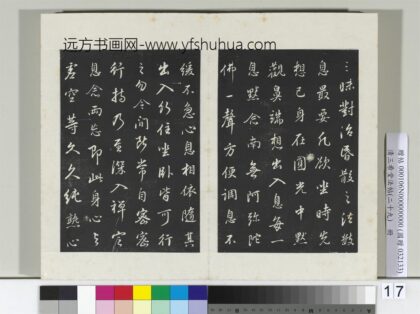 远方书画网-www.yfshuhua.com
三昧對治昏散之法數
息最要凡欲坐時先
想己身在圓光中默
觀鼻端想出入息每一
息默念南無阿彌陀
佛一聲方便調息不
緩不急心息相依隨其
出入行住坐卧皆可行
之勿令间断常自密密
行持乃至深入禪定
息念兩忘即此身心與
虚空等久久純熟心
17